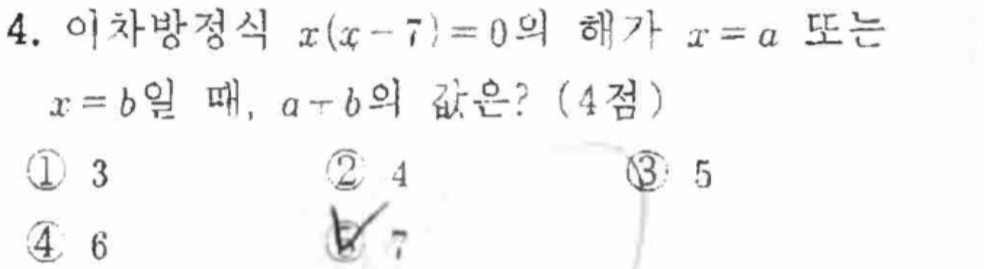 4. 이차방정식 x(x-7)=0의 해가 x=a 또는
x=b일 때, a+b의 값은? (4점)
① 3 ② 4 ③ 5
④ 6 ⑤ 7